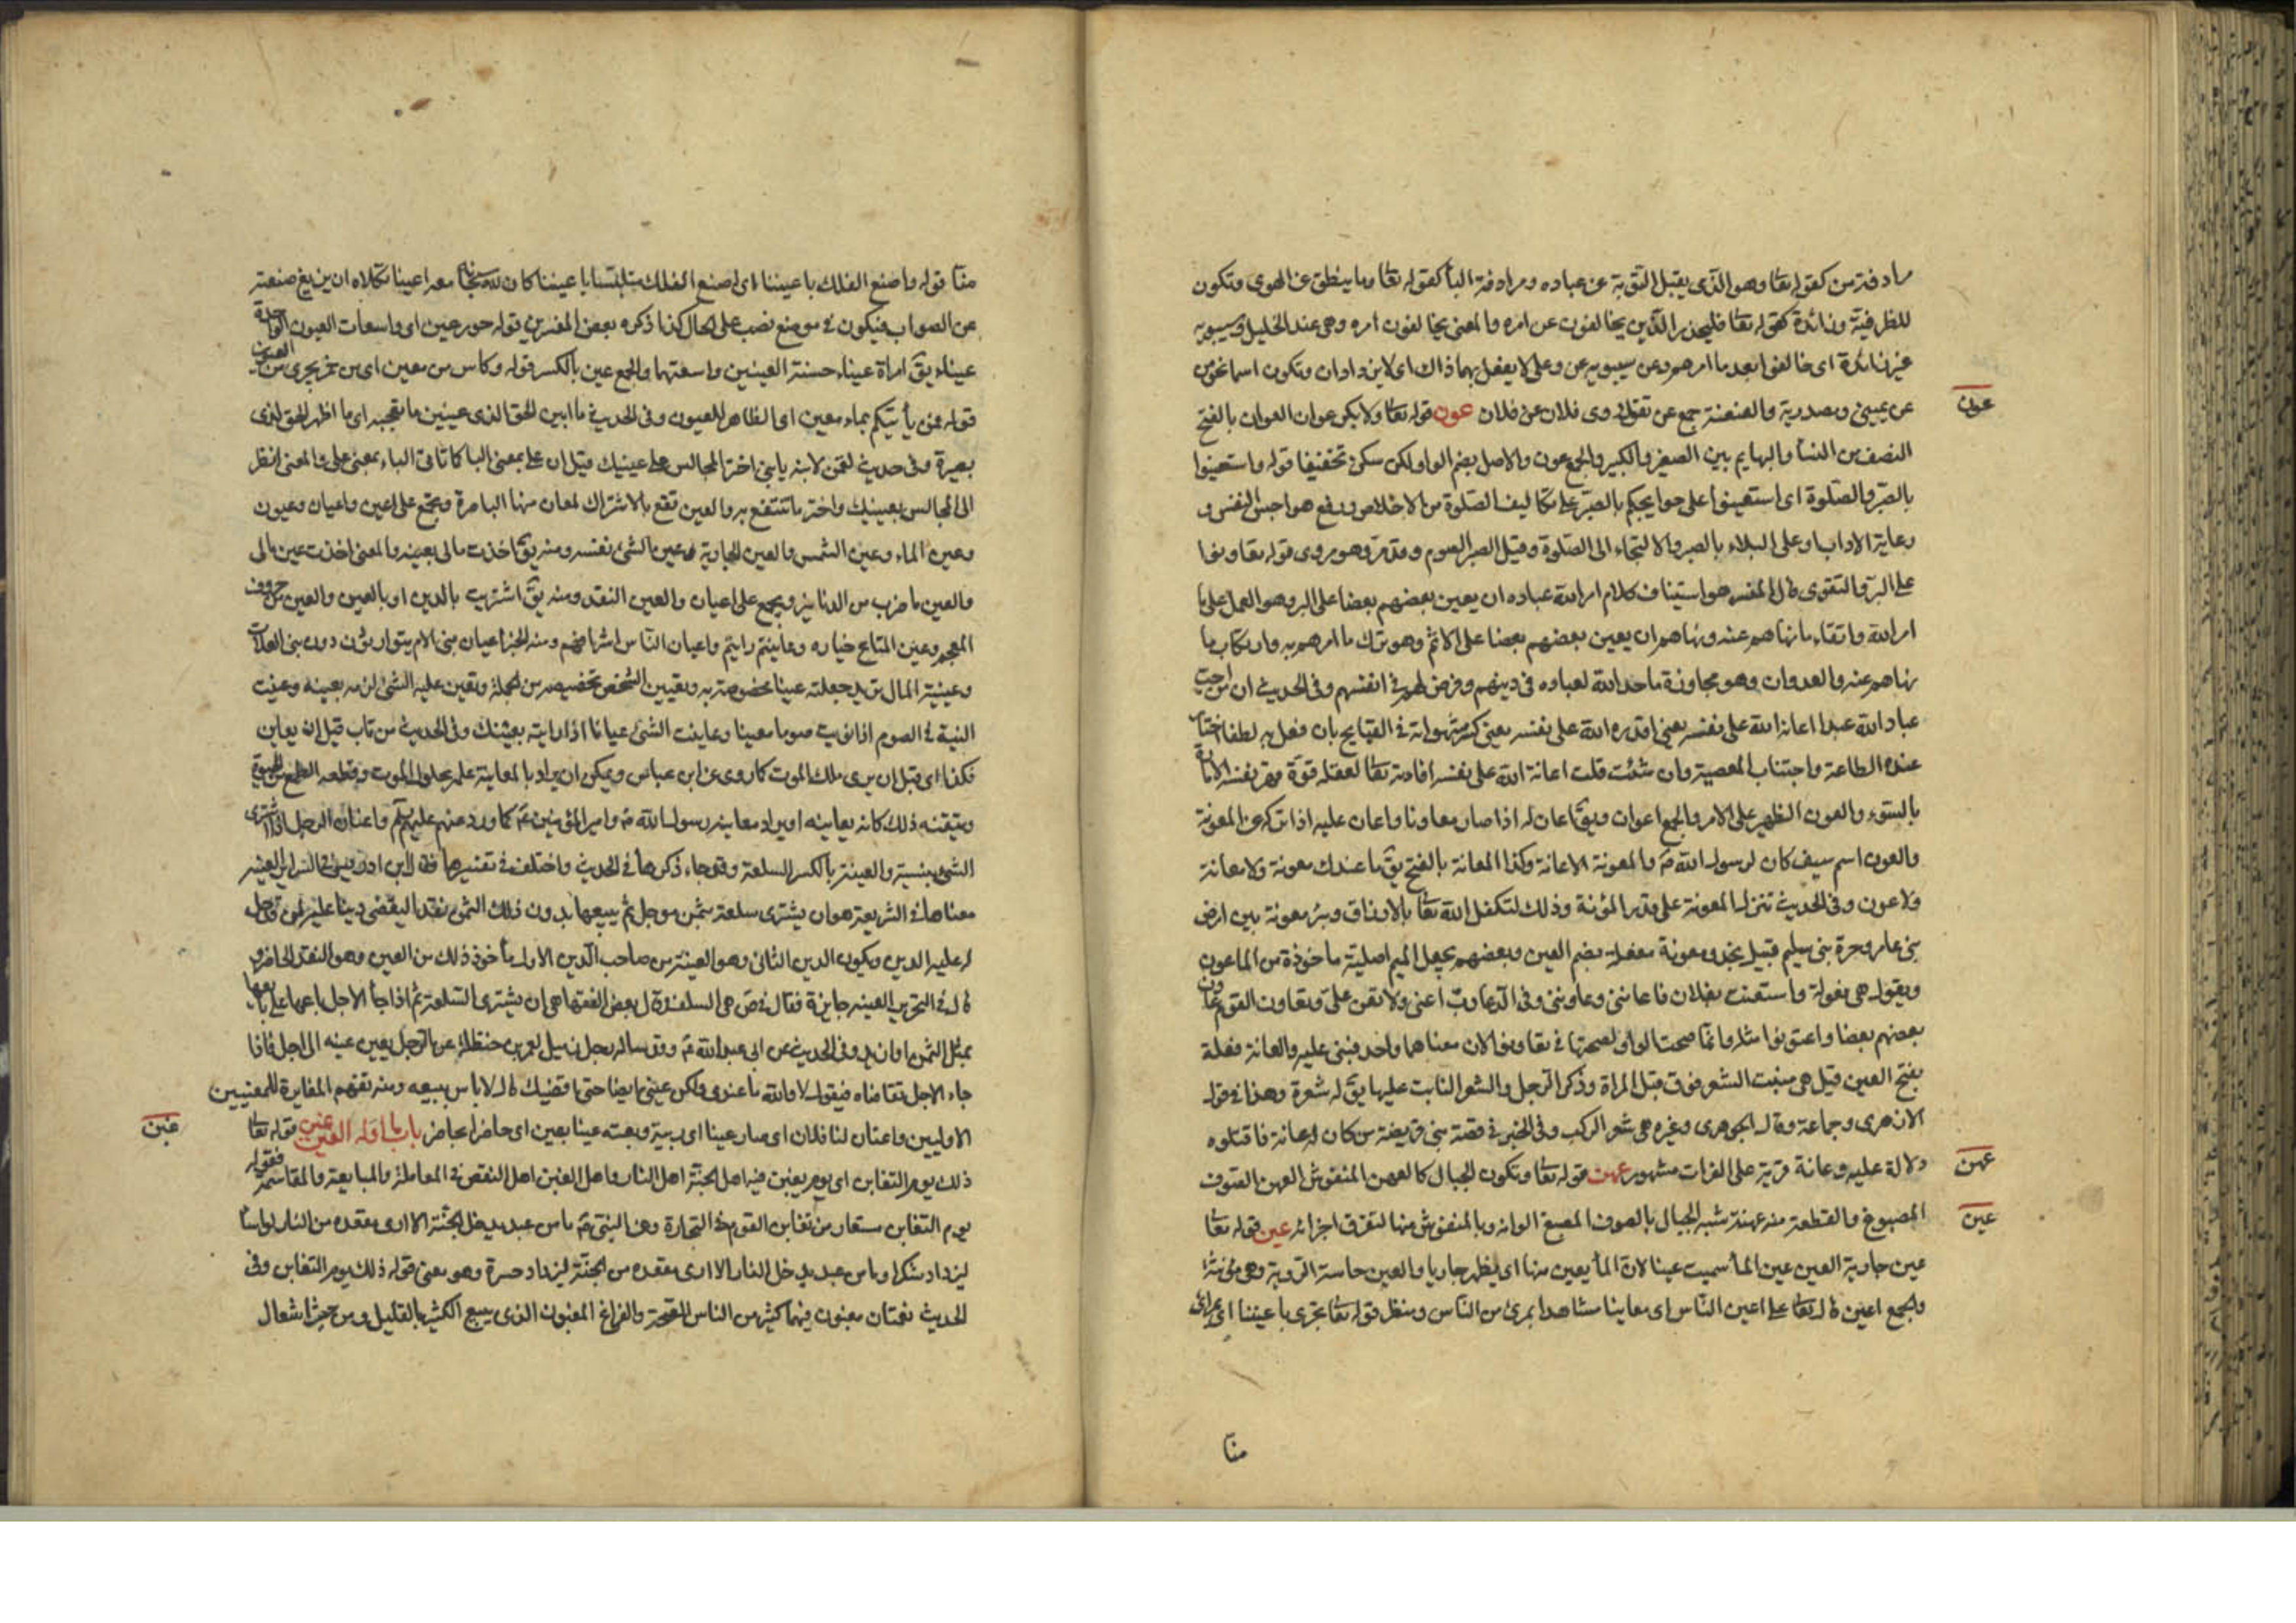 مرادفة من كقوله تعا وهو الذى يقبل التوبة عن عباده ومرادفة البأ كقوله تعا وما ينطق عن الهوى وتكون
للظرفية وزائدة كقوله تعا فليحذر الذين يخالفون عن امره والمعنى يخالفون امره وهى عند الخليل وسيبويه
غير زائدة اى خالفوا بعد ما امرهم وعن سيبويه عن وعلى لا يفعل بهما ذاك اى لا يزدادان وتكون اسما نحو من
عن يمينى ومصدرية والعنعنة جمع عن تقول روى فلان عن فلان عون قوله تعا ولا بكر عوان العوان بالفتح
عون
النصف من النسأ والبهايم بين الصغير والكبير والجمع عون والاصل بضم الواو لكن سكن تخفيفا قوله واستعينوا
بالصبر والصلوة اى استعينوا على حوايجكم بالصبر على تكاليف الصلوة من الاخلاص ودفع هواجس النفس و
رعاية الاداب او على البلاء بالصبر والالتجاء الى الصلوة وقيل الصبر الصوم وقد مر وهو مروى قوله تعاونوا
على البر والتقوى قال المفسر هو استيناف كلام امر الله عباده ان يعين بعضهم بعضا على البر وهو العمل على ما
امر الله واتقاء ما نهاهم عنه ونهاهم ان يعين بعضهم بعضا على الاثم وهو ترك ما امرهم به وارتكاب ما
نهاهم عنه والعدوان وهو مجاوزة ما حد الله لعباده فى دينهم وفرض لهم فى انفسهم وفى الحديث ان من احب
عباد الله عبدا اعانه الله على نفسه يعنى اقدره الله على نفسه يعنى كسر شهواته فى القبايح بان فعل به لطفا اختار
عنده الطاعة واجتناب المعصية وان شئت قلت اعانة الله على نفسه افادته تعا لعقله قوة قهر نفسه الامارة
بالسوء والعون الظهير على الامر والجمع اعوان ويق اعان له اذا صار معاونا واعان عليه اذا تركه عن المعونة
والعون اسم سيف كان لرسول الله ص والمعونة الاعانة وكذا المعانة بالفتح يق ما عندك معونة ولا معانة
ولا عون وفى الحديث تنزل المعونة على قدر المؤنة وذلك لتكفل الله تعا بالارزاق وبئر معونة بين ارض
بنى عامر وحرة بنى سليم قبيل نجد ومعونة مفعلة بضم العين وبعضهم يجعل الميم اصلية ماخوذة من الماعون
ويقول هى فعولة واستعنت بفلان فاعاننى وعاوننى وفى الدعا رب اعنى ولا تعن على وتعاون القوم عاون
بعضهم بعضا واعتونوا مثله وانما صحت الواو لصحتها فى تعاونوا لان معناهما واحد فبنى عليه والعانة فعلة
بفتح العين قيل هى منبت الشعر فوق قبل المراة وذكر الرجل والشعر النابت عليها يق له شعرة وهذا فى قول
الازهرى وجماعة وقال الجوهرى وغيره هى شعر الركب وفى الخبر فى قصة بنى قريضة من كان له عانة فاقتلوه
دلالة عليه وعانة قرية على الفرات مشهور عهن قوله تعا وتكون الجبال كالعهن المنفوش العهن الصوف
عهن
المصبوغ والقطعة منه عهنة شبه الجبال بالصوف المصبغ الوانه وبالمنفوش منها لتفرق اجزائه عين قوله تعا
عين
عين جارية العين عين المأ سميت عينا لان المأ يعين منها اى يظهر جاريا والعين حاسة الروية وهى مؤنثة
والجمع اعين قال تعا على اعين الناس اى معاينا مشاهدا بمرئ من الناس ومنظر قوله تعا تجرى باعيننا اى بمرائ
منا
منا قوله واصنع الفلك باعيننا اى اصنع الفلك متلبسا باعيننا كان لله سبحانه معه اعينا تكلاه ان يزيغ صنعته
عن الصواب فيكون فى موضع نصب على الحال كذا ذكره بعض المفسرين قوله حور عين اى واسعات العيون الواحدة
عيناء يق امراة عيناء حسنة العينين واسعتهما والجمع عين بالكسر قوله وكاس من معين اى من خمر يجرى من العيون
قوله فمن يأتيكم بماء معين اى الظاهر للعيون وفى الحديث
بصيرة وفى حديث لقمن لابنه يا بنى اختر المجالس على عينيك قيل ان على بمعنى البا كما تاتى الباء بمعنى على والمعنى انظر
الى المجالس بعينيك واختر ما تنتفع به والعين تقع بالاشتراك لمعان منها الباصرة وتجمع على اعين واعيان وعيون
وعين الماء وعين الشمس والعين الجارية وعين الشئ نفسه ومنه يق اخذت مالى بعينه والمعنى اخذت عين مالى
والعين ما ضرب من الدنانيز ويجمع على اعيان والعين النقد ومنه يق اشتريت بالدين او بالعين والعين من حروف
المعجم وعين المتاع خياره وعاينتم رايتم واعيان الناس اشرافهم ومنه الخبر اعيان بنى الام يتوارثون دون بنى العلات
وعينية المال لزيد جعلته عينا مخصوصة به وتعيين الشخص تخصيصه من الجملة وتعين عليه الشئ لزمه بعينه وعينت
النية فى الصوم اذا نويت صوما معينا وعاينت الشئ عيانا اذا رايته بعينك وفى الحديث من تاب قبل ان يعاين
فكذا اى قبل ان يرى ملك الموت كما روى عن ابن عباس ويمكن ان يراد بالمعاينة علمه بحلول الموت وقطعه الطمع من الحيوة
وتيقنه ذلك كانه يعاينه او يراد معاينة رسول الله ص وامير المؤمنين ع كما ورد عنهم عليهم السلم واعتان الرجل اذا اشترى
الشئ بنسيئة والعينة بالكسر السلعة وقد جاء ذكرها فى الحديث واختلف فى تفسيرها فقال ابن ادريس فى السرائر العينة
معناها فى الشريعة هو ان يشترى سلعة بثمن موجل ثم يبيعها بدون ذلك الثمن نقدا ليقضى دينا عليه لمن قد حل
له عليه الدين ويكون الدين الثانى وهو العينة من صاحب الدين الاول مأخوذ ذلك من العين وهو النقد الحاضر و
قال فى التحرير العينة جايزة فقال فى ص هى السلف وقال بعض الفقها هى ان يشترى السلعة ثم اذا جأ الاجل باعها على بايعها
بمثل الثمن او ازيد وفى الحديث عن ابى عبد الله ع وقد ساله رجل زميل لعمر بن حنظلة عن الرجل يعين عينه الى اجل فاذا
جاء الاجل تقاضاه فيقول لا والله ما عندى ولكن عينى ايضا حتى اقضيك قال لا باس ببيعه ومنه تفهم المغايرة للمعنيين
الاوليين واعتان لنا فلان اى صار عينا اى ربيئة وبعته عينا بعين اى حاضرا بحاضر باب ما اوله الغين غبن قوله تعا
غبن
ذلك يوم التغابن اى يوم يغبن فيه اهل الجنة اهل النار واصل الغبن اهل النقص فى المعاملة والمبايعة والمقاسمة فقوله
يوم التغابن مستعار من تغابن القوم فى التجارة وعن النبى ص ما من عبد يدخل الجنة الا ارى مقعده من النار لو اسأ
ليزداد شكرا وما من عبد يدخل النار الا ارى مقعده من الجنة ليزداد حسرة وهو معنى قوله ذلك يوم التغابن وفى
الحديث نعمتان مغبون فيهما كثير من الناس الصحة والفراغ المغبون الذى يبيع الكثير بالقليل ومن حيث اشتغال